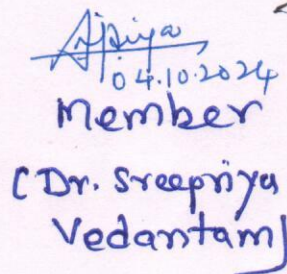 04.10.2024
Member
(Dr. Sreepriya
Vedantam)